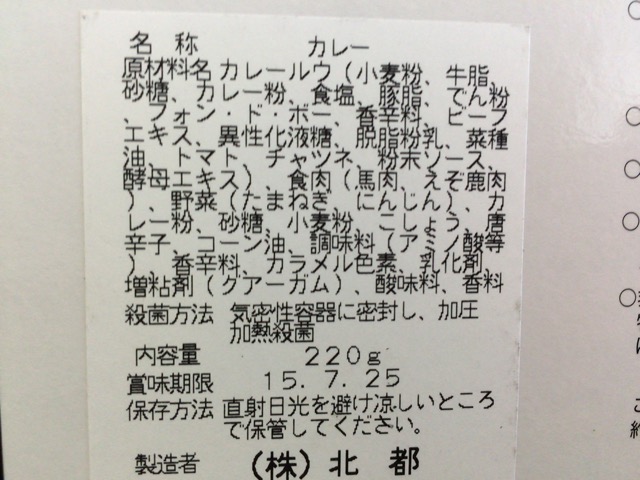 名称 カレー
原材料名 カレールウ(小麦粉、牛脂、
砂糖、カレー粉、食塩、豚脂、でん粉
、フォン・ド・ボー、香辛料、ビーフ
エキス、異性化液糖、脱脂粉乳、菜種
油、トマト、チャツネ、粉末ソース、
酵母エキス)、食肉(馬肉、えぞ鹿肉
)、野菜(たまねぎ、にんじん)、カ
レー粉、砂糖、小麦粉、こしょう、唐
辛子、コーン油、調味料(アミノ酸等
)、香辛料、カラメル色素、乳化剤、
増粘剤(グアーガム)、酸味料、香料
殺菌方法 気密性容器に密封し、加圧
加熱殺菌
内容量 220g
賞味期限 15.7.25
保存方法 直射日光を避け涼しいところ
で保管してください。
製造者 (株)北都